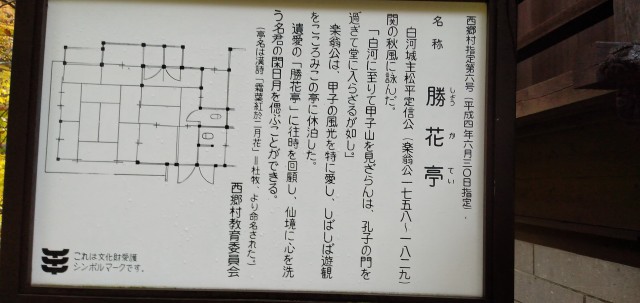 西郷村指定第六号(平成四年六月三〇日指定)．
名称　勝花亭
しょう　か　てい
白河城主松平定信公（楽翁公一七五八〜一八二九）
関の秋風に詠んだ。
「白河に至りて甲子山を見ざらんは、孔子の門を
過ぎて堂に入らざるが如し」
楽翁公は、甲子の風光を特に愛し、しばしば遊観
をこころみこの亭に休泊した。
遺愛の「勝花亭」に往時を回顧し、仙境に心を洗
う名君の閑日月を偲ぶことができる。
（亭名は漢詩「霜葉紅於二月花」＝杜牧、より命名された。）
西郷村教育委員会
これは文化財愛護
シンボルマークです。